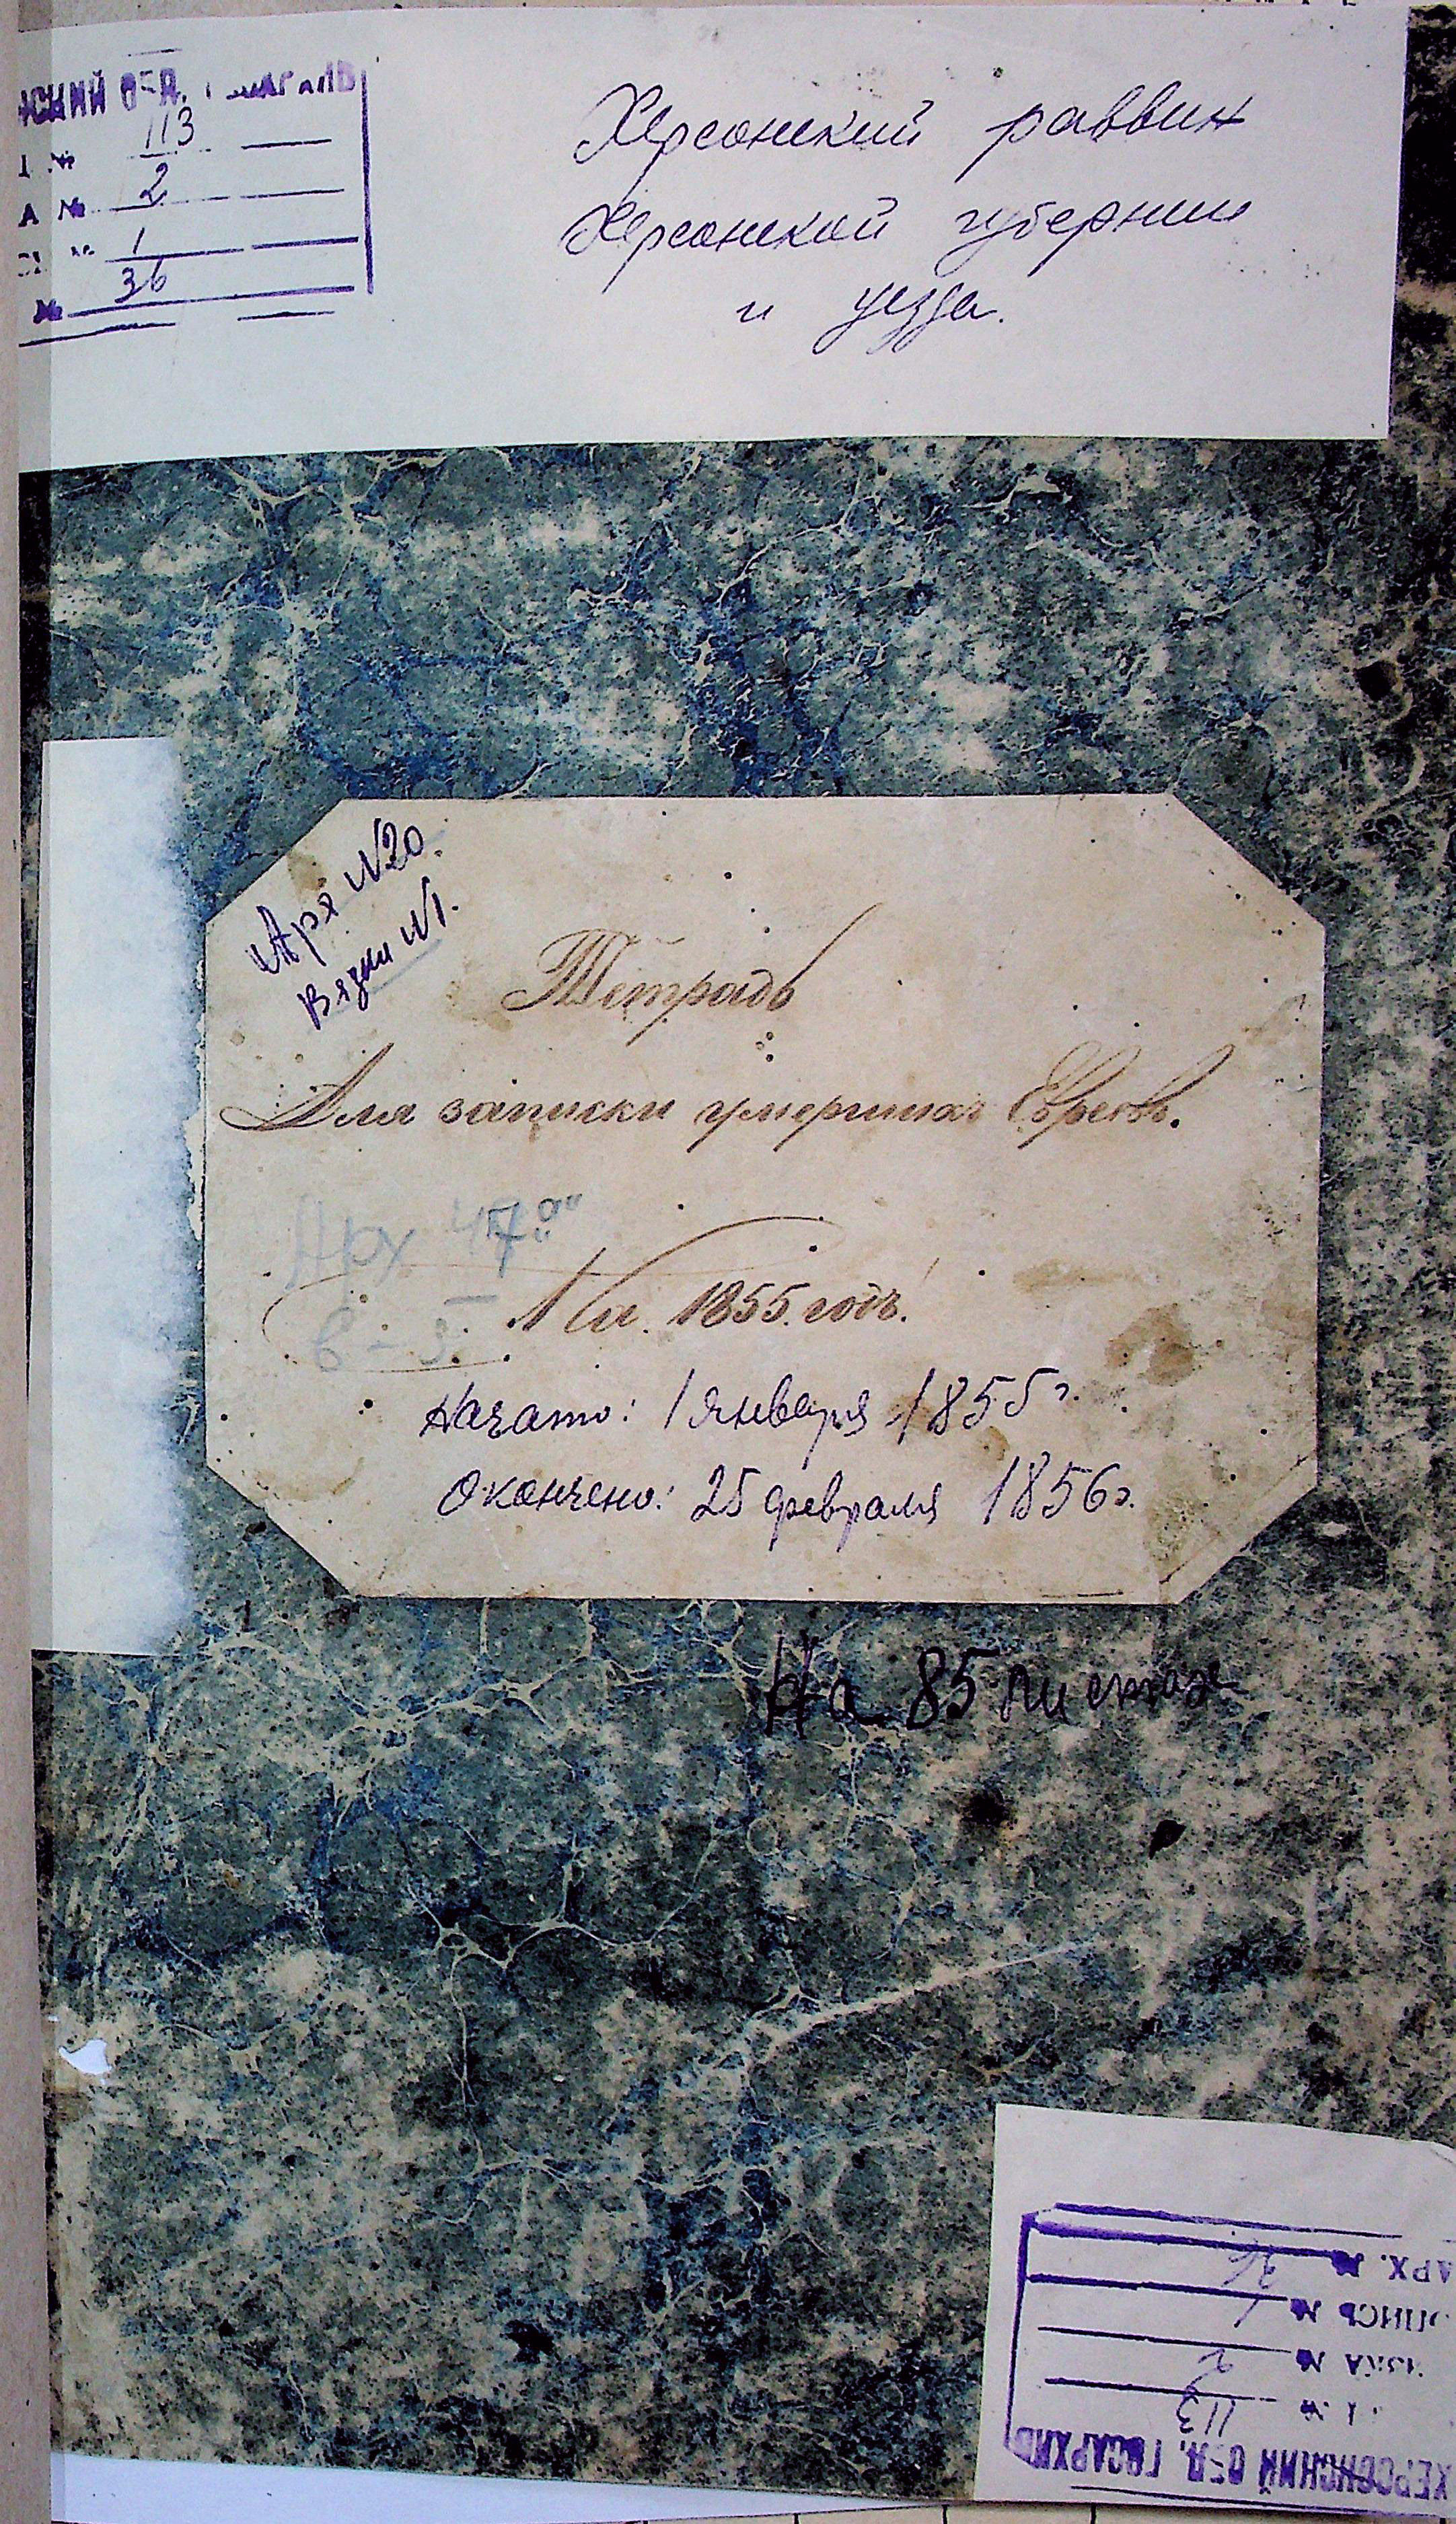 ХЕРСОНСКИЙ ОБЛ. ГОСАРХИВ
№ 113
А № 2
1
№ 36
Херсонский раввин
Херсонской губернии
и уезда.
Арх №20.
Вязки №1.
Тетрадь
Для записки умершихъ Евреевъ.
Арх
На 1855. годъ.
Начато: 1 января 1855 г.
Окончено: 25 февраля 1856 г.
На 85 листах
ХЕРСОНСКИЙ ОБЛ. ГОСАРХИВ
№ 113
ВЯЗКА № 2
ОПИСЬ № 1
АРХ. № 36